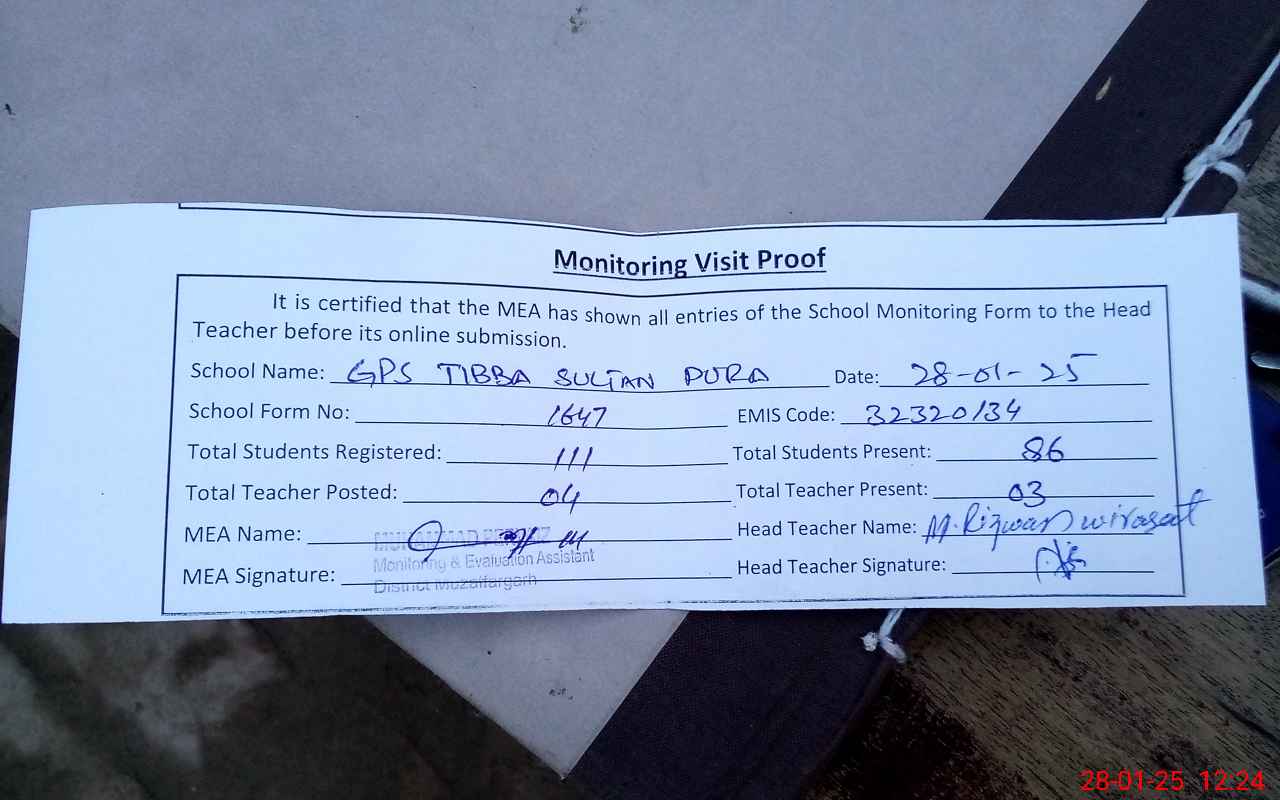 Monitoring Visit Proof
It is certified that the MEA has shown all entries of the School Monitoring Form to the Head
Teacher before its online submission.
School Name: GPS TIBBA SULTAN PURA Date: 28-01-25
School Form No: 1647 EMIS Code: 32320134
Total Students Registered: 111 Total Students Present: 86
Total Teacher Posted: 04 Total Teacher Present: 03
MEA Name: MUHAMMAD Head Teacher Name: M. Rizwan wirasat
Monitoring & Evaluation Assistant
MEA Signature: Head Teacher Signature:
District Muzaffargarh
28-01-25 12:24